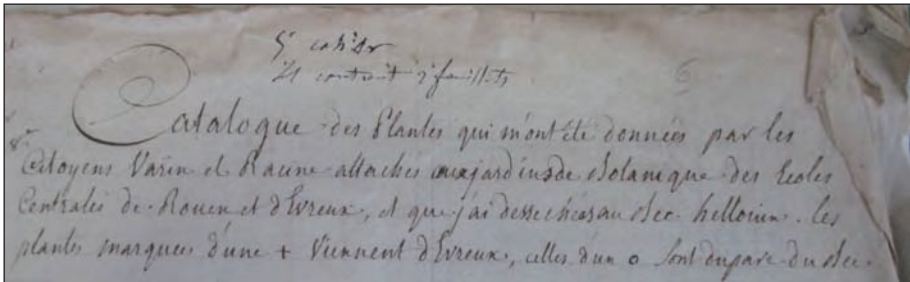 5e cahier
Il contient feuillets
6
Catalogue des Plantes qui m'ont été données par les
Citoyens Varin et Racine attachés aux jardins de Botanique des Ecoles
Centrales de Rouen et d'Evreux, et que j'ai dessechées au Bec-hellouin. Les
plantes marquées d'une + viennent d'Evreux, celles d'un o sont du parc du Bec.